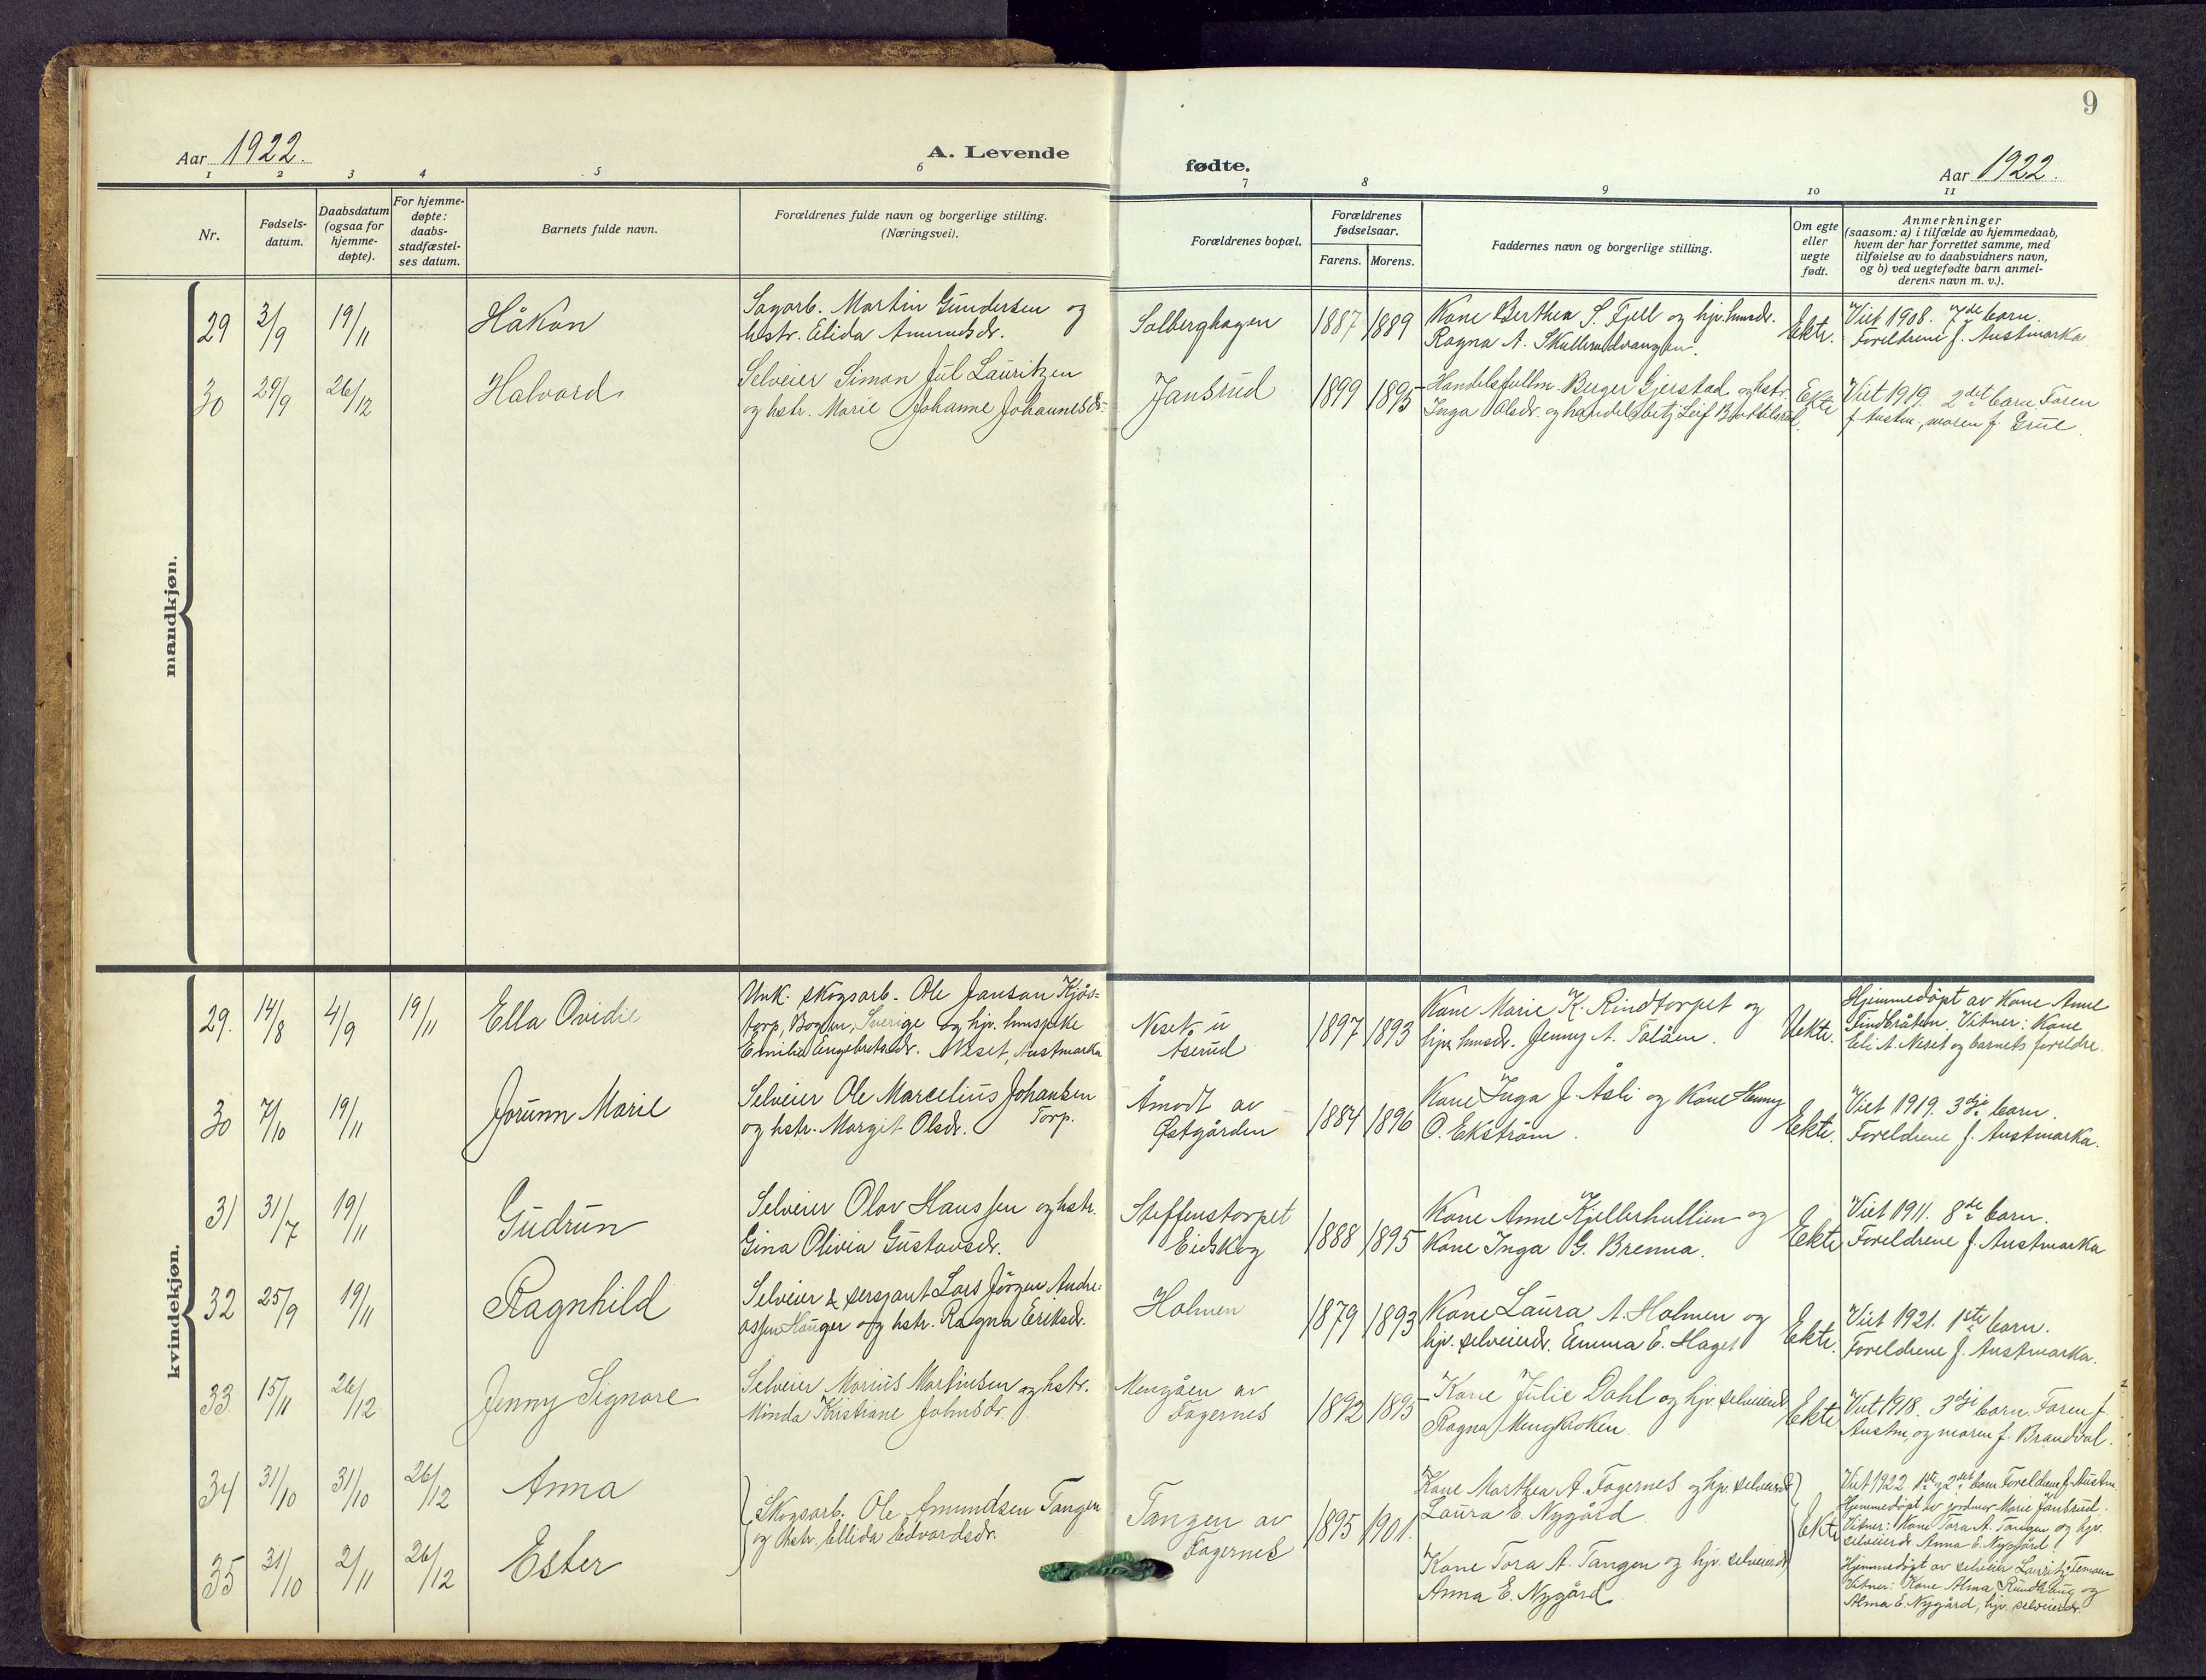 9
Aar 1922.
A. Levende
fødte.
Aar 1922.
1 2 3 4 5 6 7 8 9 10 11
Nr.
Fødsels-
datum.
Daabsdatum
(ogsaa for
hjemme-
døpte).
For hjemme-
døpte:
daabs-
stadfæstel-
ses datum.
Barnets fulde navn.
Forældrenes fulde navn og borgerlige stilling.
(Næringsvei).
Forældrenes bopæl.
Forældrenes
fødselsaar.
Farens. Morens.
Faddernes navn og borgerlige stilling.
Om egte
eller
uegte
født.
Anmerkninger
(saasom: a) i tilfælde av hjemmedaab,
hvem der har forrettet samme, med
tilføielse av to daabsvidners navn,
og b) ved uegtefødte barn anmel-
derens navn m. v.).
mandkjøn.
29 3/9 19/11 Håkon
Sagarb. Martin Gundersen og
hstr. Elida Amundsdr.
Solberghagen
1887 1889
Kone Berthea S. Fjell og hjv. husmdr.
Ragna A. Skullerudvangen.
Ekte.
Viet 1908. 7de barn.
Foreldrene f. Austmarka.
30 29/9 26/12 Halvard
Selveier Simon Jul Lauritzen
og hstr. Marie Johanne Johannesdr.
Jansrud
1899 1895
Handelsfullm. Berger Gjerstad og hstr.
Inga Olsdr. og handelsbetj. Leif
Ekte
Viet 1919. 2det barn. Faren
f. Austm., moren f. Grue.
kvindekjøn.
29. 14/8 4/9 19/11 Ella Ovidie
Unk. skogsarb. Ole Janson Kjös-
torp, Bogen, Sverige og hjv. hunspike
Emilie Engebretsdr. Neset, Austmarka
Neset u
Åserud
1897 1893
Kone Marie K. Rindtorpet og
hjv. husmdr. Jenny A. Talåen.
Uekte.
Hjemmedöpt av Kone Anne
Findbråten. Vitner: Kone
Eli A. Neset og barnets foreldre.
30 7/10 19/11 Jorunn Marie
Selveier Ole Marcelius Johansen
og hstr. Margit Olsdr. Torp.
Åmodt av
Østgården
1884 1896
Kone Inga J. Åsli og Kone Henny
O. Ekström.
Ekte.
Viet 1919. 3dje barn.
Foreldrene f. Austmarka.
31 31/7 19/11 Gudrun
Selveier Olav Hanssen og hstr.
Gina Olivia Gustavsdr.
Steffenstorpet
Eidskog
1888 1895
Kone Anne Kjellerhullien og
Kone Inga G. Brenna.
Ekte
Viet 1911. 8de barn.
Foreldrene f. Austmarka
32 25/9 19/11 Ragnhild
Selveier & sersjant Lars Jörgen Andre-
assen Hauger og hstr. Ragna Eriksdr.
Holmen
1879 1893
Kone Laura A. Holmen og
hjv. selveierdr. Emma E. Haget
Ekte.
Viet 1921. 1ste barn.
Foreldrene f. Austmarka.
33 15/11 26/12 Jenny Signore
Selveier Marius Martinsen og hstr.
Minda Kristiane Johnsdr.
Mengåen av
Fagernes
1892 1895
Kone Julie Dahl og hjv. selveierdr
Ragna Mengkroken.
Ekte
Viet 1918. 3dje barn. Faren f.
Austm. og moren f. Brandval.
34 31/10 31/10 26/12 Anna
Skogsarb. Ole Amundsen Tangen
og hstr. Ellida Edvardsdr.
Tangen av
Fagernes
1895 1901.
Kone Marthea A. Fagernes og hjv. selveierdr
Laura E. Nygård.
Ekte
Viet 1922 1ste og 2det barn Foreldrene f. Austm.
Hjemmedöpt av jordmor Marie Jansrud.
Vitner: Kone Tora A. Tangen og hjv.
selveierdr Anna E. Nygård.
35 31/10 2/11 26/12 Ester
Kone Tora A. Tangen og hjv. selveierdr
Anna E. Nygård
Hjemmedöpt av selveier Lauritz
Vitner: Kone Alma Rundhaug og
Alma E. Nygård, hjv. selveierdr.